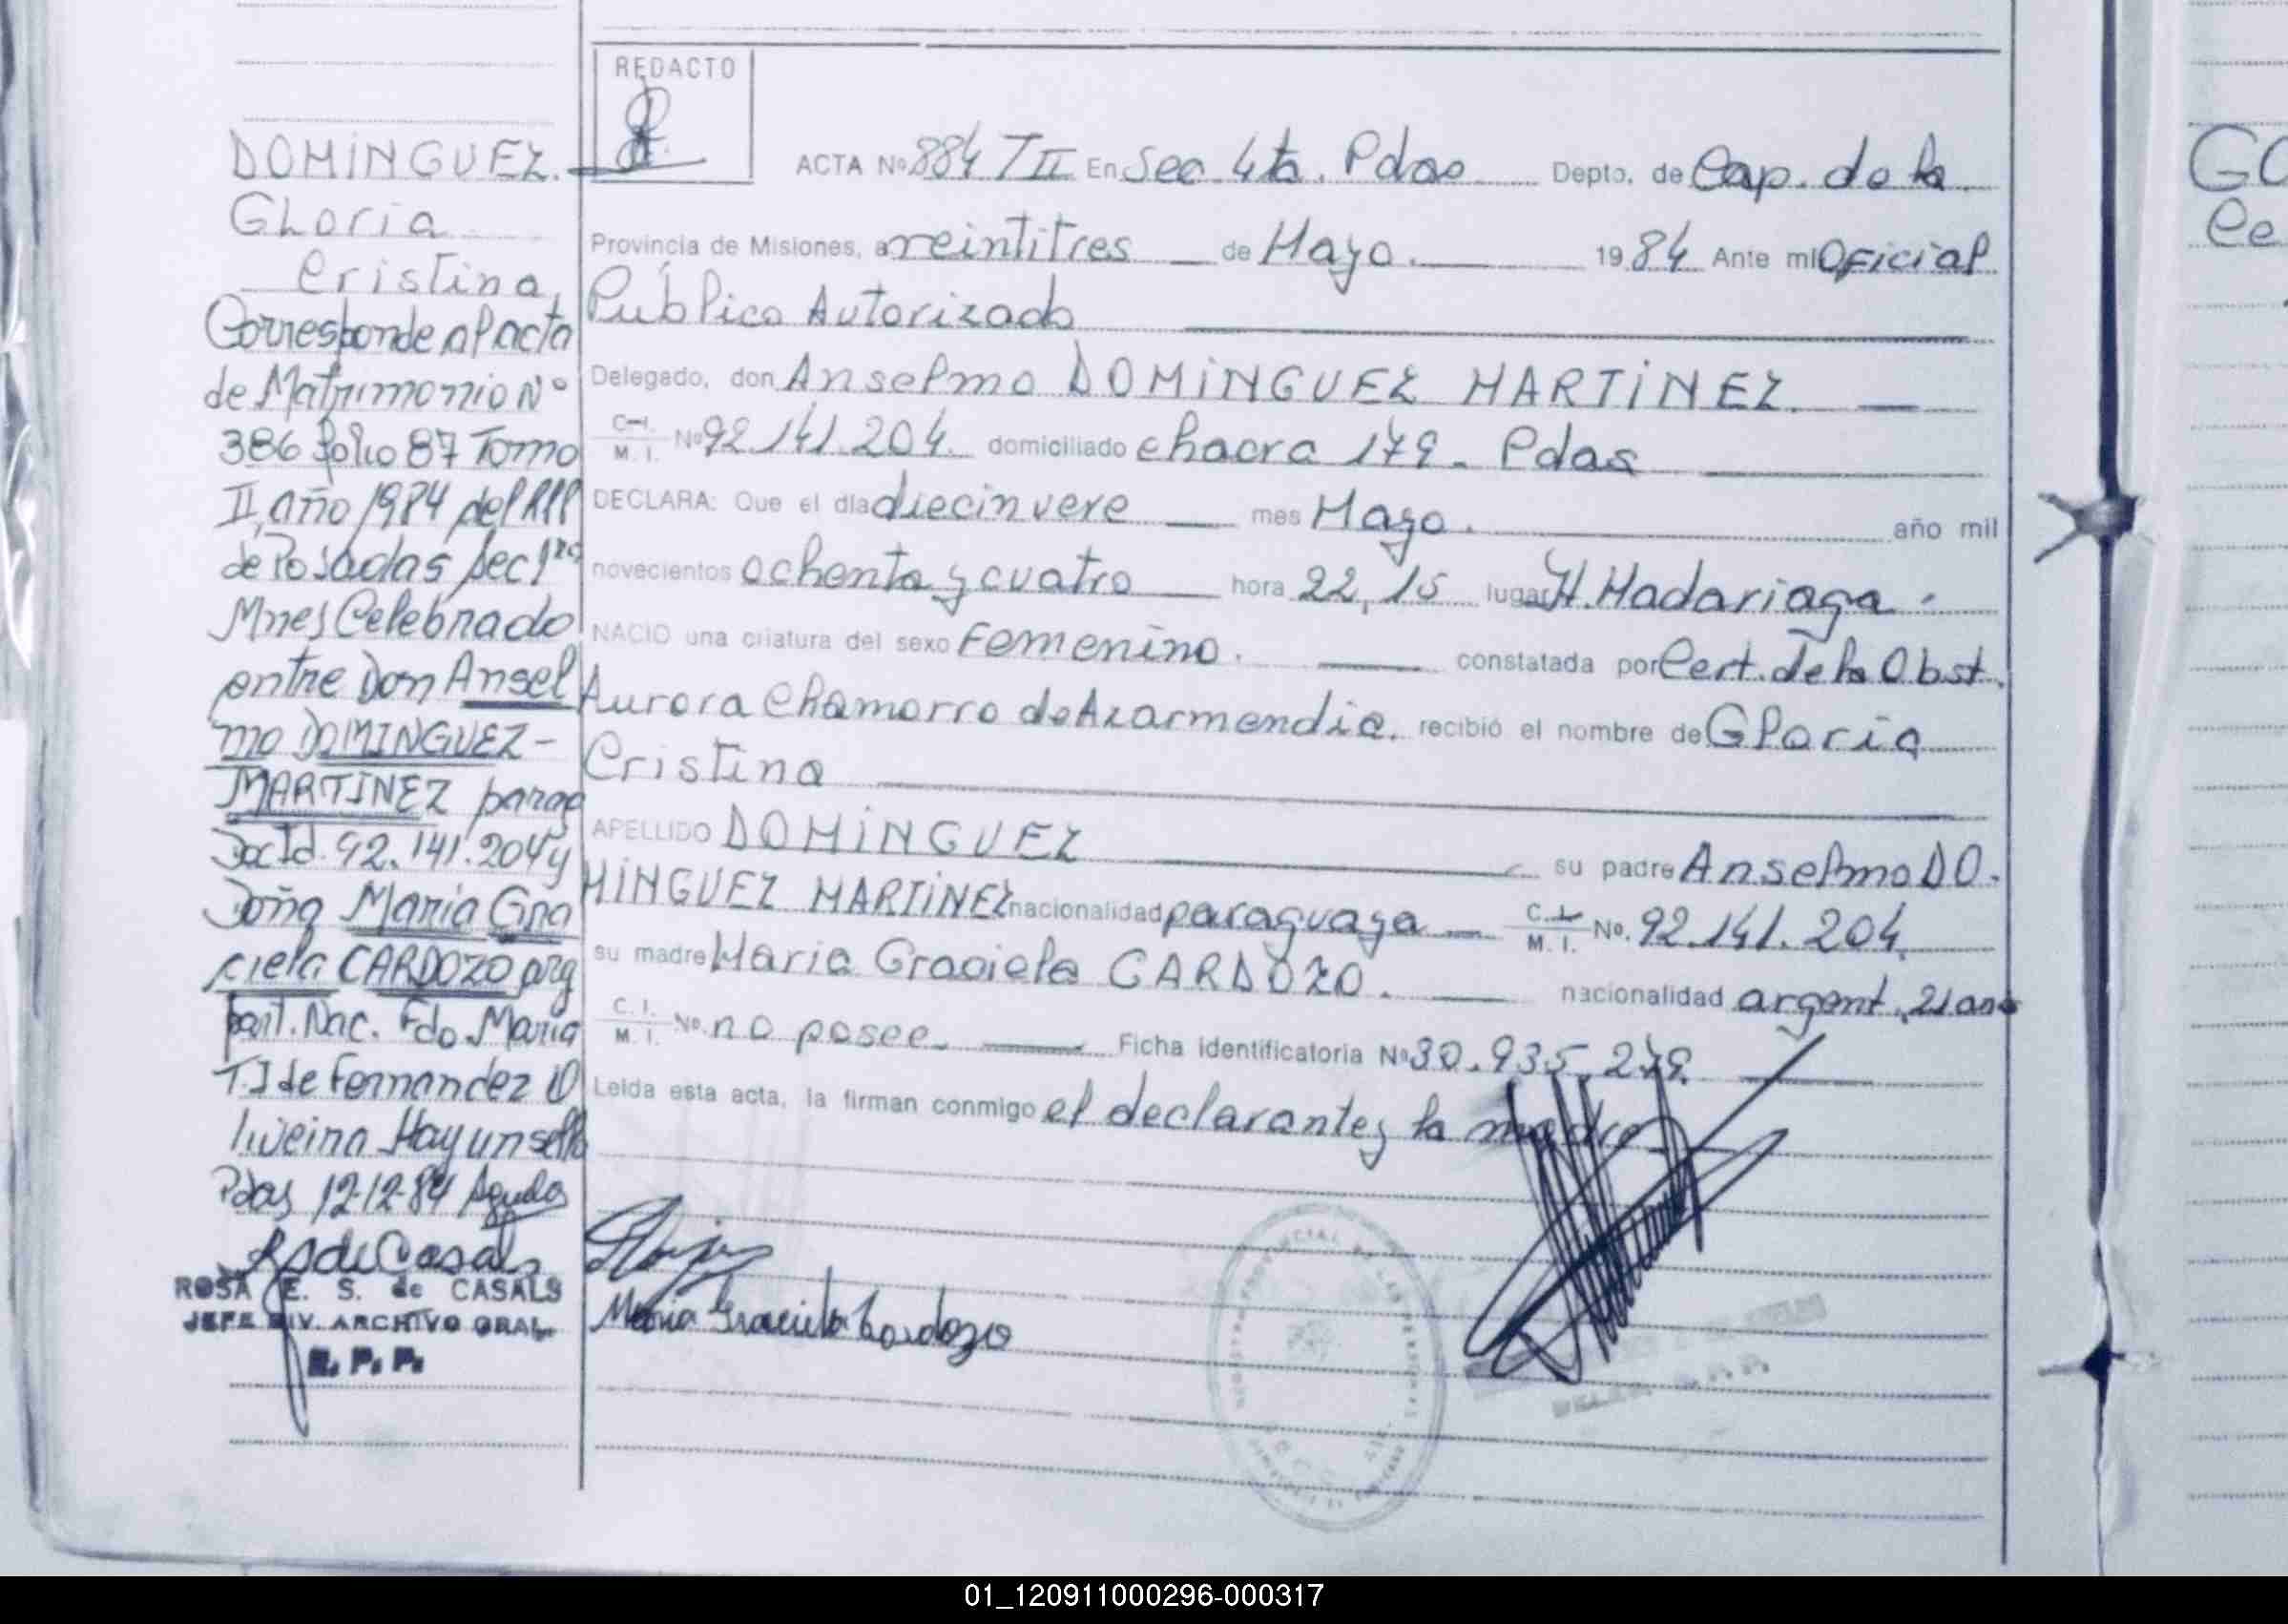 DOMiNGUEZ.
GLoria
Cristina
Corresponde al acta
de Matrimonio N°
386 folio 87 Tomo
II, año 1984 del RPP
de Posadas Sec 1ra
Mnes Celebrado
entre Don Ansel
mo DOMINGUEZ-
MARTINEZ parag
Doc Id. 92.141.204 y
Doña Maria Gra
ciela CARDOZO arg
part. Nac. Fdo. Maria
T. J de Fernandez O
liveira Hay un sello
Pdas 12-12-84
ROSA E. S. de CASALS
JEFE DIV. ARCHIVO GRAL.
R. P. P.
REDACTO
ACTA Nº 884 T II En Sec 4ta. Pdas Depto. de Cap. de la
Provincia de Misiones, a veintitres de Mayo. 1984 Ante mi Oficial
Público Autorizado
Delegado, don Anselmo DOMiNGUEZ MARTiNEZ.
C. I. M. I. Nº 92.141.204. domiciliado chacra 179. Pdas
DECLARA: Que el día diecinueve mes Mayo. año mil
novecientos ochenta y cuatro hora 22,15 lugar H. Madariaga.
NACIO una criatura del sexo Femenino. constatada por Cert. de la Obst.
Aurora Chamorro de Azarmendia. recibió el nombre de Gloria
Cristina
APELLIDO DOMiNGUEZ su padre Anselmo DO.
MiNGUEZ MARTiNEZ nacionalidad paraguaya C. I. M. I. Nº. 92.141.204.
su madre Maria Graciela CARDOZO. nacionalidad argent. 21 años
C. I. M. I. Nº. no posee. Ficha identificatoria Nº 30.935.279.
Leída esta acta, la firman conmigo el declarante y la madre
Maria Graciela Cardozo
GO
Ce
01_120911000296-000317